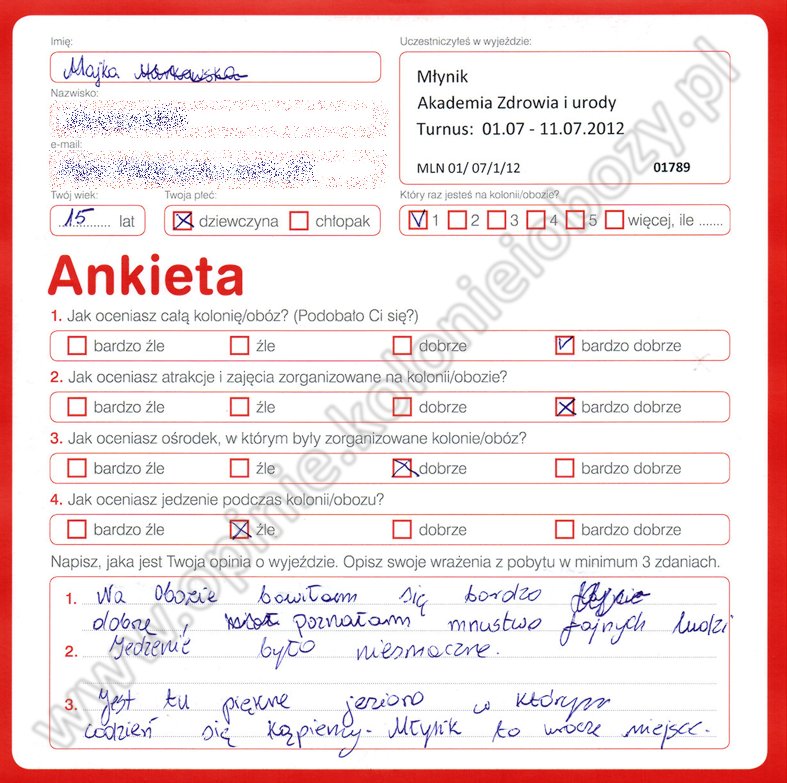 Imię:
Majka
Nazwisko:
e-mail:
Twój wiek:
15 lat
Twoja płeć:
dziewczyna chłopak
Uczestniczyłeś w wyjeździe:
Młynik
Akademia Zdrowia i urody
Turnus: 01.07 - 11.07.2012
MLN 01/ 07/1/12 01789
Który raz jesteś na kolonii/obozie?
1 2 3 4 5 więcej, ile .......
Ankieta
1. Jak oceniasz całą kolonię/obóz? (Podobało Ci się?)
bardzo źle źle dobrze bardzo dobrze
2. Jak oceniasz atrakcje i zajęcia zorganizowane na kolonii/obozie?
bardzo źle źle dobrze bardzo dobrze
3. Jak oceniasz ośrodek, w którym były zorganizowane kolonie/obóz?
bardzo źle źle dobrze bardzo dobrze
4. Jak oceniasz jedzenie podczas kolonii/obozu?
bardzo źle źle dobrze bardzo dobrze
Napisz, jaka jest Twoja opinia o wyjeździe. Opisz swoje wrażenia z pobytu w minimum 3 zdaniach.
1. Na obozie bawiłam się bardzo
dobrze, poznałam mnustwo fajnych ludzi
2. Jedzenie było niesmaczne.
3. Jest tu piękne jezioro w którym
codzień się kąpiemy. Młynik to urocze miejsce.
www.opinie.kolonieiobozy.pl